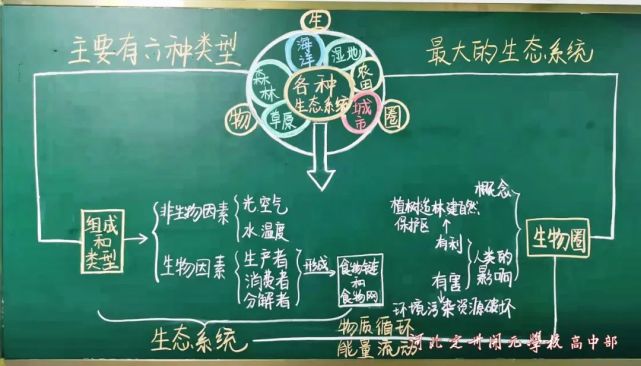 生
主要有六种类型
最大的生态系统
海洋
湿地
森林
农田
各种
生态系统
草原
城市
物
圈
组成
和
类型
非生物因素
光 空气
水 温度
生物因素
生产者
消费者
分解者
形成
食物链
和
食物网
概念
植树造林 建自然
保护区
有利
人类的
影响
有害
环境污染资源破坏
生物圈
生态系统
物质循环
能量流动
河北定州开元学校 高中部